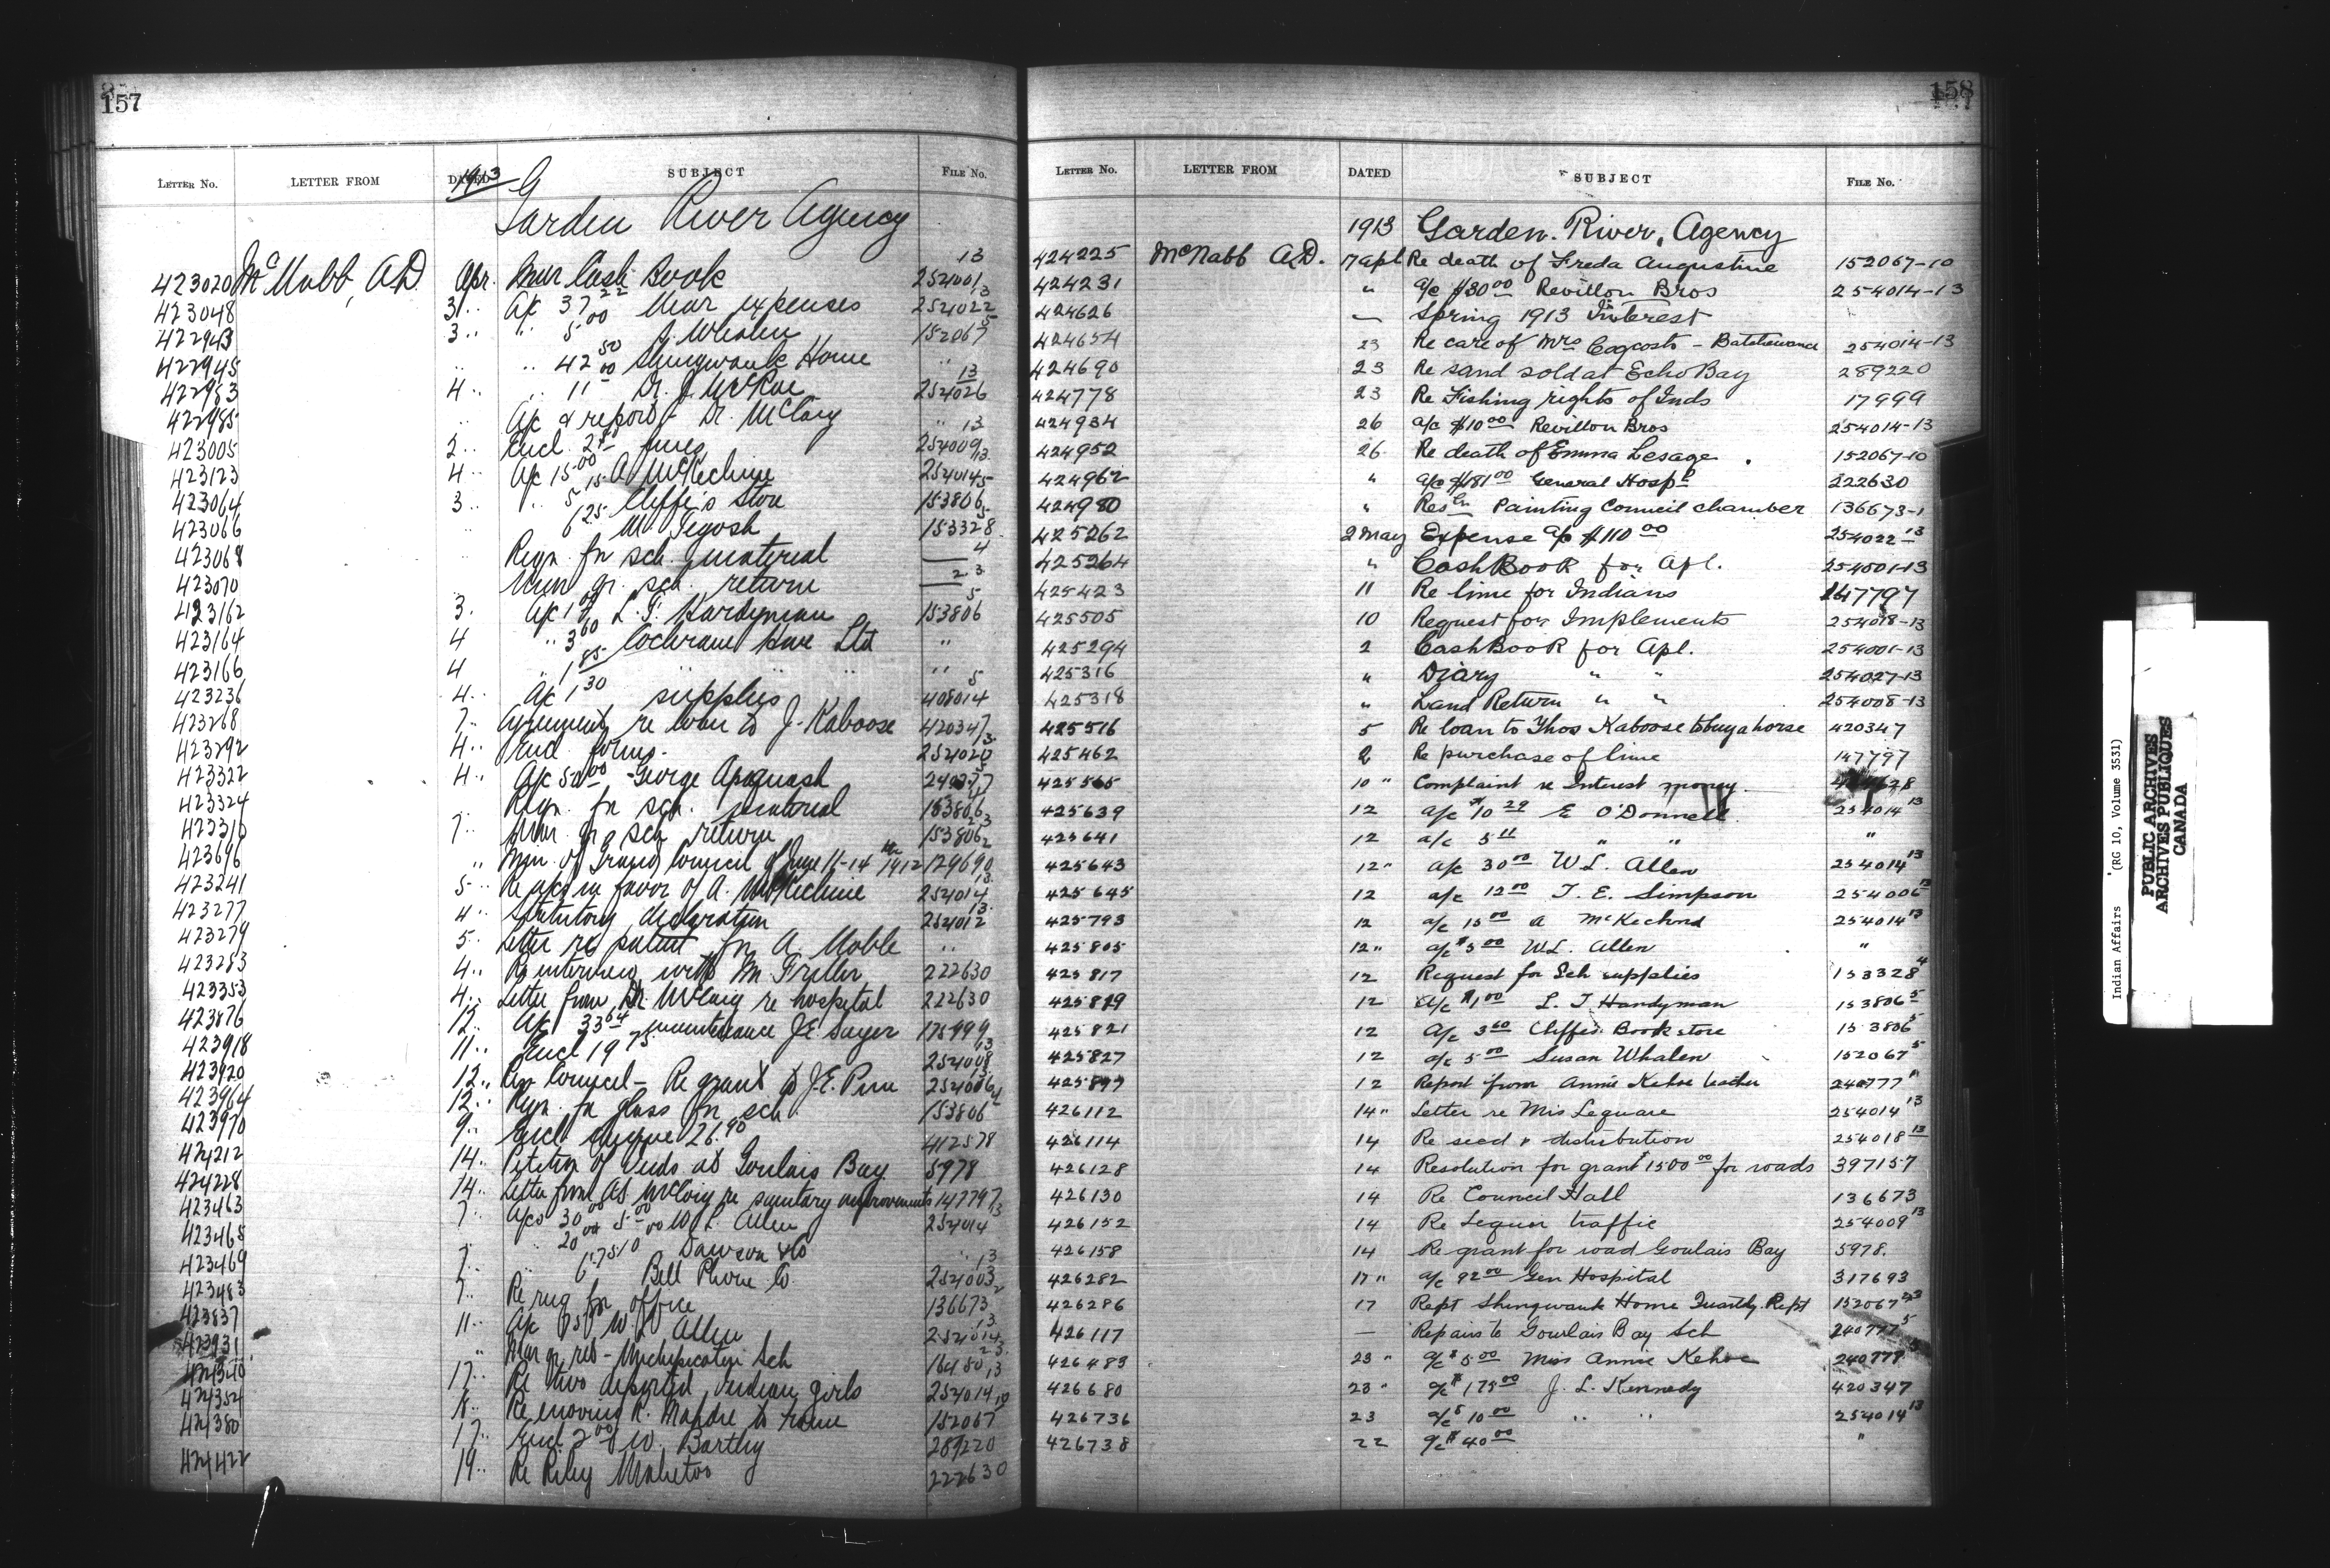 157
LETTER No. LETTER FROM DATED 1913 SUBJECT FILE No.
Garden River Agency
423020 McNabb, A.D. Apr. Mar Cash Book 254001 13
423048 31 .. A/c 37 22 Mar expenses 254022 13
422943 3 .. " 5 00 J. Whalen 152067 5
422945 .. .. 42 50 Shingwauk Home ..
422983 4 .. .. 11 00 Dr. J. McRae 254026 13
422985 .. A/c & report Dr. McCaig ..
423005 2 .. Encl. 25 00 fines 254009 13
423123 4 .. A/c 15 00 A. McKechnie 254014 13
423064 3 .. .. 5 15 Cliffe's Store 153806 5
423066 .. 6 25 M. Tegosh 153328 5
423068 .. Reqn. for sch. material —— 4
423070 .. Mar qr. sch. return —— 23
423162 3. A/c 1 00 L. T. Handyman 153806 5
423164 4 .. 3 60 Cochrane Hdwe Ltd ..
423166 4 .. 1 85 .. .. .. ..
423236 4 .. A/c 1 30 supplies 408014 5
423268 7 .. Agreement, re loan to J. Kaboose 420347
423292 4 .. Encl. forms. 254020 13
423322 4 .. A/c 50 00 George 240777 5
423324 Reqn. for sch. material 153806 4
423310 7 .. Mar. qr. sch. return 153806 23
423696 .. Min. of Grand Council of June 11-14th 1912 129690 2
423241 5 .. Re a/cs in favor of A. McKechnie 254014 13
423277 4 .. Statutory declaration 254012 13
423279 5 .. Letter re patent for A. Noble ..
423283 4 .. Re interview with M. 222630
423353 4 .. Letter from Dr. McCaig re hospital 222630
423876 12 .. A/c 33 64 maintenance J.E. Sayer 175999
423918 11 .. Encl 19 75 254008 13
423920 12 .. Res. Council - Re grant to J.E. Pine 254006 13
423964 12 .. Reqn. for glass for sch. 153806 4
423970 9 .. Encl. cheque 26.90 412578
424212 14 .. Petition of Inds. at Goulais Bay 5978
424228 14 .. Letter from McCaig re sanitary improvements 147797
423463 7 .. A/cs 30 00 5 00 W. L. Allen 254014 13
423465 .. .. 20 00 Dawson & Co ..
423469 7 .. .. Bell Phone Co. 254003 13
423483 7 .. Re rug for office 136673 2
423837 11 .. A/c W. L. Allen 254014 13
423931 .. Mar qr. ret - Michipicoten Sch 23
424340 17 .. Re two deported Indian girls 254014 13
424354 18 .. Re moving R. to home 152067 10
424380 17 .. Encl. 2 00 of W. Barthy 289220
424422 19 .. Re Riley 222630
158
LETTER No. LETTER FROM DATED SUBJECT FILE No.
1913 Garden River, Agency
424225 McNabb A.D. 17 apl Re death of Freda Augustine 152067-10
424231 " a/c $30 00 Revillon Bros 254014-13
424626 — Spring 1913 Interest .
424654 23 Re care of Mrs Cogcosh - Batchewana 254014-13
424690 23 Re sand sold at Echo Bay 289220
424778 23 Re Fishing rights of Inds 17999
424934 26 a/c $10 00 Revillon Bros 254014-13
424952 26 Re death of Emma Lesage . 152067-10
424962 " a/c $181 00 General Hospl 222630
424980 " Resln Painting Council chamber 136673-1
425262 2 May Expense a/c $110 00 254022-13
425264 " Cash Book for Apl. 254001-13
425423 11 Re lime for Indians 147797
425505 10 Request for Implements 254018-13
425294 2 Cash Book for Apl. 254001-13
425316 " Diary " " 254027-13
425318 " Land Return " " 254008-13
425516 5 Re loan to Thos Kaboose to buy a horse 420347
425462 2 Re purchase of lime 147797
425565 10 " Complaint re Interest money.
425639 12 a/c $10 29 E O'Donnell 254014 13
425641 12 a/c 5 11 " " "
425643 12 " a/c 30 00 W L. Allen 254014 13
425645 12 a/c 12 00 T. E. Simpson 254006 13
425793 12 a/c 15 00 A McKechnd 254014 13
425805 12 " a/c $5 00 W.L. Allen "
425817 12 Request for Sch supplies 153328 4
425819 12 a/c $1 00 L. T Handyman 153806 5
425821 12 a/c 3 60 Cliffes Book store 153806 5
425827 12 a/c 5 00 Susan Whalen 152067 5
425897 12 Report from Annie Kehoe teacher 240777 "
426112 14 " Letter re Mrs Leguare 254014 13
426114 14 Re seed & distribution 254018 13
426128 14 Resolution for grant $1500 00 for roads 397157
426130 14 Re Council Hall 136673
426152 14 Re Lequor traffic 254009 13
426158 14 Re grant for road Goulais Bay 5978.
426282 17 " a/c 92 00 Gen Hospital 317693
426286 17 Rept Shingwauk Home Quartly. Rept 152067 23
426117 — Repairs to Goulais Bay Sch 240777 5
426483 23 " a/c $5 00 Miss Annie Kehoe 240777 5
426680 23 " a/c $175 00 J. L. Kennedy 420347
426736 23 a/c $10 00 " " 254014 13
426738 22 a/c $40 00 "
Indian Affairs (RG 10, Volume 3531)
PUBLIC ARCHIVES
ARCHIVES PUBLIQUES
CANADA